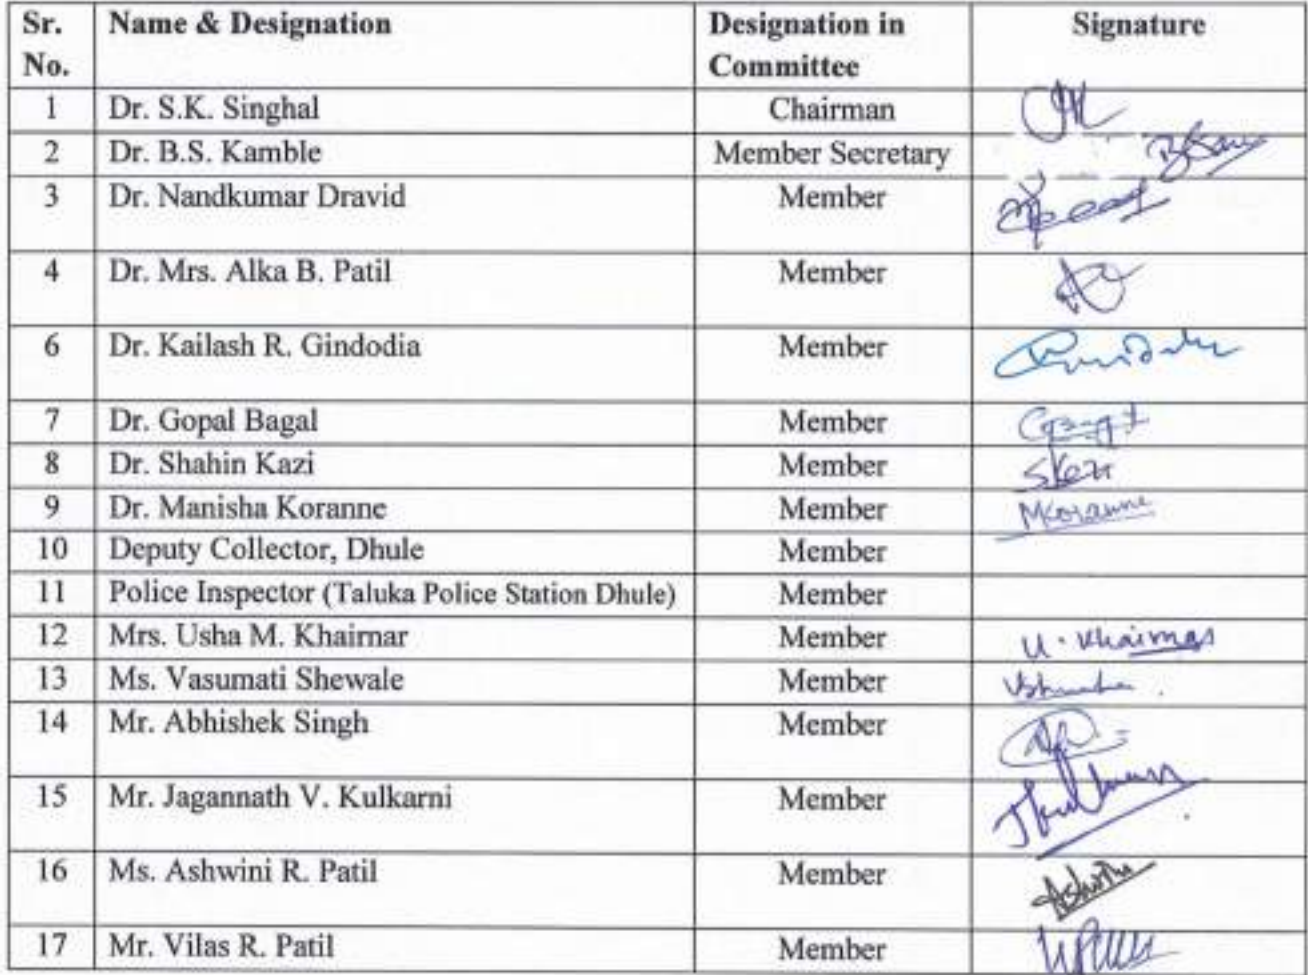 Sr. No. Name & Designation Designation in Committee Signature
1 Dr. S.K. Singhal Chairman
2 Dr. B.S. Kamble Member Secretary
3 Dr. Nandkumar Dravid Member
4 Dr. Mrs. Alka B. Patil Member
6 Dr. Kailash R. Gindodia Member
7 Dr. Gopal Bagal Member
8 Dr. Shahin Kazi Member SKazi
9 Dr. Manisha Koranne Member MKoranne
10 Deputy Collector, Dhule Member
11 Police Inspector (Taluka Police Station Dhule) Member
12 Mrs. Usha M. Khairnar Member U. Khairnar
13 Ms. Vasumati Shewale Member
14 Mr. Abhishek Singh Member
15 Mr. Jagannath V. Kulkarni Member
16 Ms. Ashwini R. Patil Member Ashwini
17 Mr. Vilas R. Patil Member